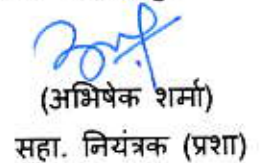 (अभिषेक शर्मा)
सहा. नियंत्रक (प्रशा)